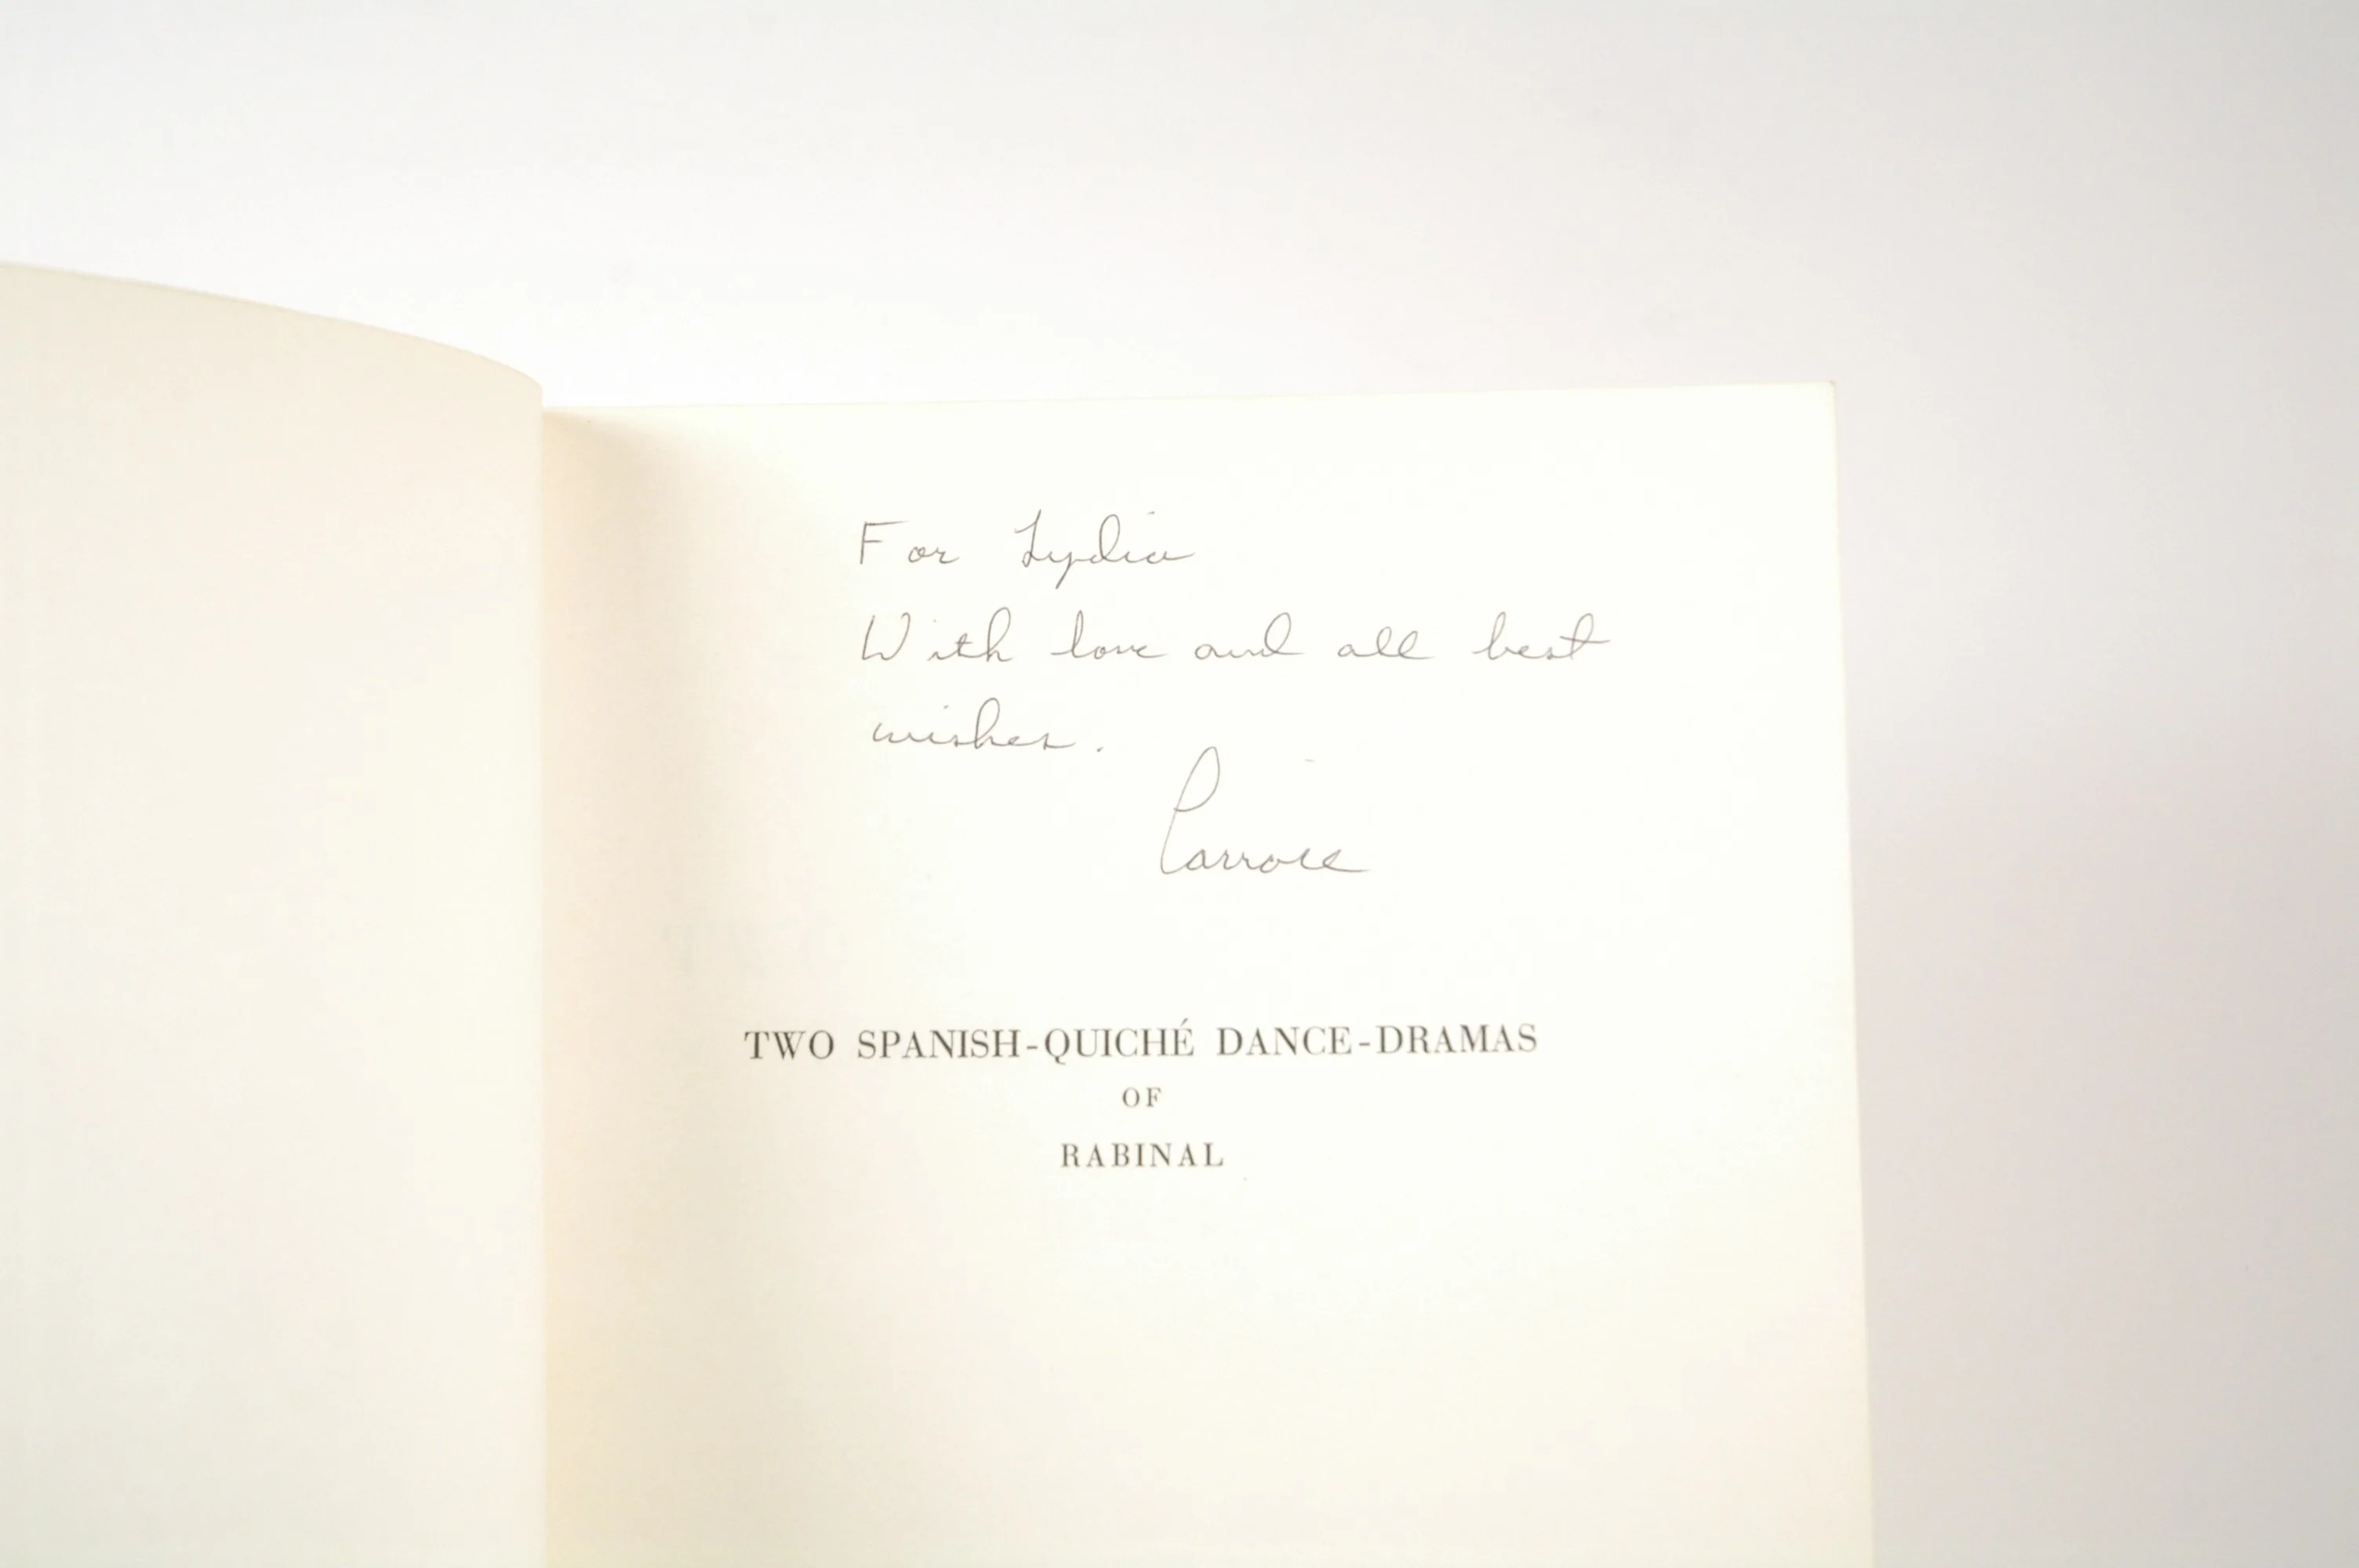 For Lydia
With love and all best
wishes.
Carroll
TWO SPANISH-QUICHÉ DANCE-DRAMAS
OF
RABINAL